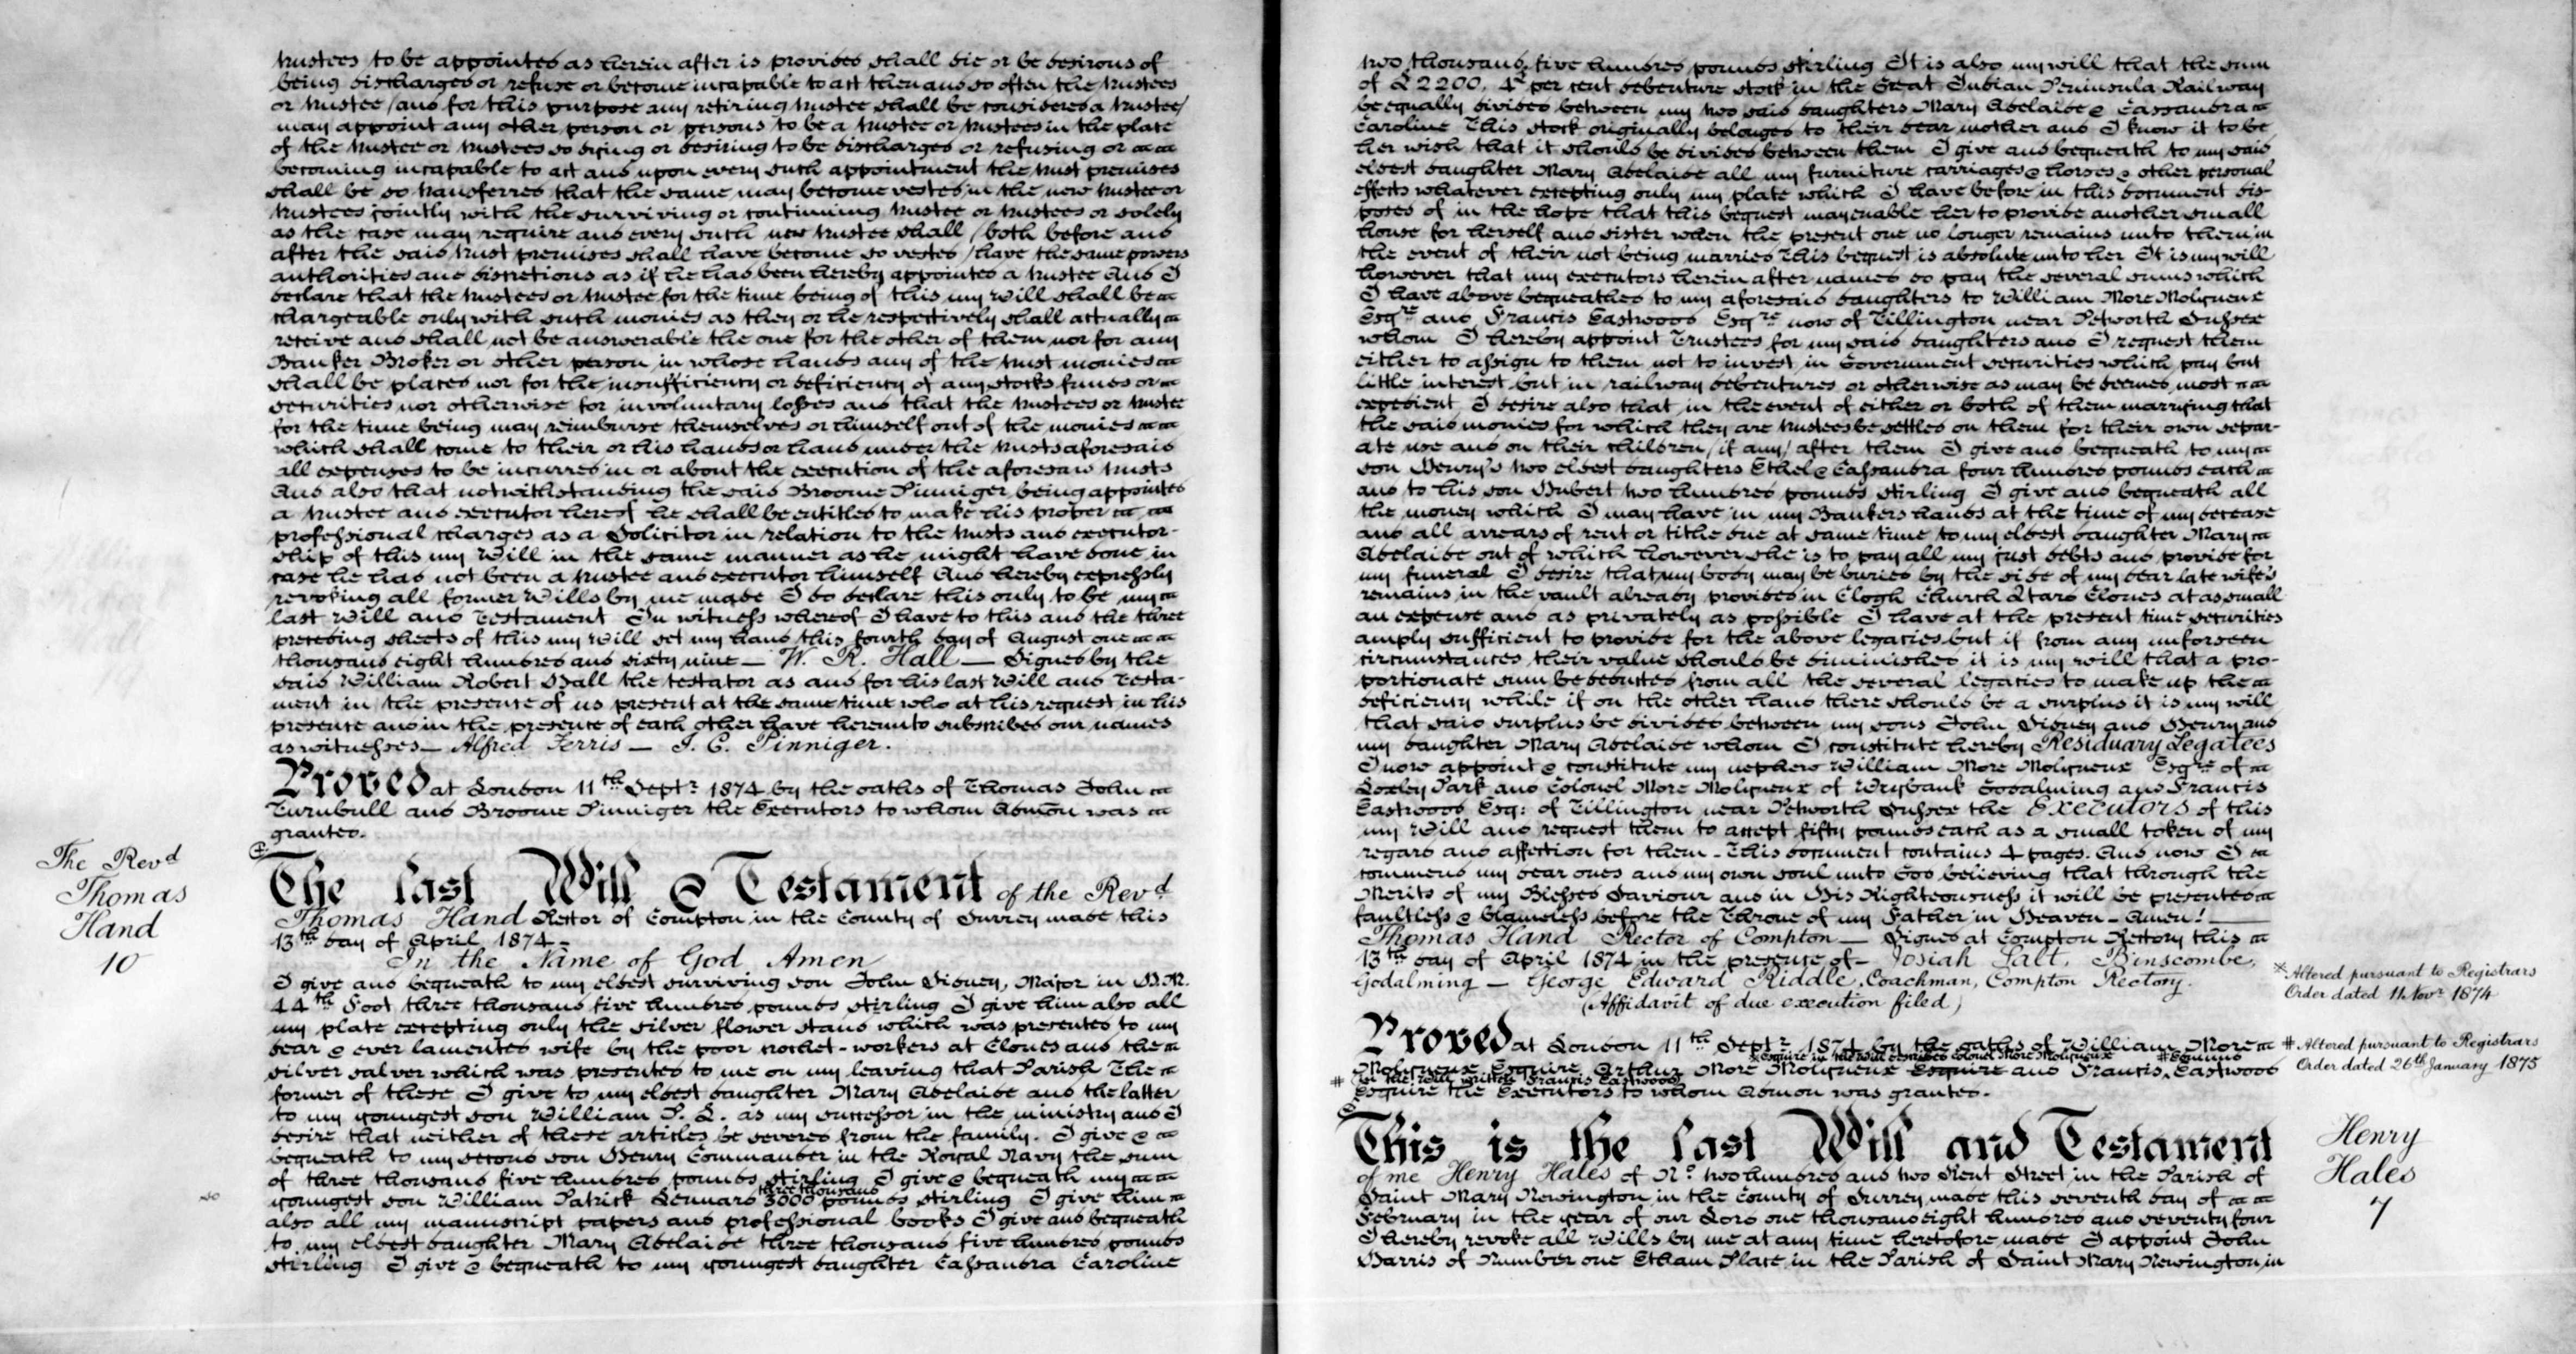 trustees to be appointed as herein after is provided shall die or be desirous of
being discharged or refuse or become incapable to act then and so often the trustees
or trustee (and for this purpose any retiring trustee shall be considered a trustee)
may appoint any other person or persons to be a trustee or trustees in the place
of the trustee or trustees so dying or desiring to be discharged or refusing or
becoming incapable to act and upon every such appointment the trust premises
shall be so transferred that the same may become vested in the new trustee or
trustees jointly with the surviving or continuing trustee or trustees or solely
as the case may require and every such new trustee shall (both before and
after the said trust premises shall have become so vested) have the same powers
authorities and discretions as if he had been hereby appointed a trustee And I
declare that the trustees or trustee for the time being of this my Will shall be
chargeable only with such monies as they or he respectively shall actually
receive and shall not be answerable the one for the other of them nor for any
Banker Broker or other person in whose hands any of the trust monies
shall be placed nor for the insufficiency or deficiency of any stocks funds or
securities nor otherwise for involuntary losses and that the trustees or trustee
for the time being may reimburse themselves or himself out of the monies
which shall come to their or his hands or hand under the trusts aforesaid
all expenses to be incurred in or about the execution of the aforesaid trusts
And also that notwithstanding the said Broome Pinniger being appointed
a trustee and executor hereof he shall be entitled to make his proper
professional charges as a Solicitor in relation to the trusts and executor-
ship of this my Will in the same manner as he might have done in
case he had not been a trustee and executor himself And hereby expressly
revoking all former Wills by me made I do declare this only to be my
last Will and Testament In witness whereof I have to this and the three
preceding sheets of this my Will set my hand this fourth day of August one
thousand eight hundred and sixty nine — W. R. Hall — Signed by the
said William Robert Hall the testator as and for his last Will and Testa-
ment in the presence of us present at the same time who at his request in his
presence and in the presence of each other have hereunto subscribed our names
as witnesses — Alfred Ferris — J. C. Pinniger.
Proved at London 11th Septr 1874 by the oaths of Thomas John
Turnbull and Broome Pinniger the Executors to whom Admon was
granted.
The Revd
Thomas
Hand
10
The last Will & Testament of the Revd
Thomas Hand Rector of Compton in the County of Surrey made this
13th day of April 1874 —
In the Name of God Amen
I give and bequeath to my eldest surviving son John Sidney, Major in H.M.
44th Foot three thousand five hundred pounds stirling I give him also all
my plate excepting only the silver flower stand which was presented to my
dear & ever lamented wife by the poor crochet-workers at Clones and the
silver salver which was presented to me on my leaving that Parish The
former of these I give to my eldest daughter Mary Adelaide and the latter
to my youngest son William P. L. as my successor in the ministry and I
desire that neither of these articles be severed from the family. I give &
bequeath to my second son Henry Commander in the Royal Navy the sum
of three thousand five hundred pounds stirling I give & bequeath my
three thousand
youngest son William Patrick Lennard 3000 pounds stirling I give him
also all my manuscript papers and professional books I give and bequeath
to my eldest daughter Mary Adelaide three thousand five hundred pounds
stirling I give & bequeath to my youngest daughter Cassandra Caroline
two thousand five hundred pounds stirling It is also my will that the sum
of £2200, 4 per cent debenture stock in the Great Indian Peninsula Railway
be equally divided between my two said daughters Mary Adelaide & Cassandra
Caroline This stock originally belonged to their dear mother and I know it to be
her wish that it should be divided between them I give and bequeath to my said
eldest daughter Mary Adelaide all my furniture carriages & horses & other personal
effects whatever excepting only my plate which I have before in this document dis-
posed of in the hope that this bequest may enable her to provide another small
house for herself and sister when the present one no longer remains unto them in
the event of their not being married This bequest is absolute unto her It is my will
however that my executors herein after named do pay the several sums which
I have above bequeathed to my aforesaid daughters to William More Molyneux
Esqre and Francis Eastwood Esqre now of Tillington near Petworth Sussex
whom I hereby appoint Trustees for my said daughters and I request them
either to assign to them not to invest in Government securities which pay but
little interest but in railway debentures or otherwise as may be deemed most
expedient I desire also that in the event of either or both of them marrying that
the said monies for which they are trustees be settled on them for their own separ-
ate use and on their children (if any) after them I give and bequeath to my
son Henry's two eldest daughters Ethel & Cassandra four hundred pounds each
and to his son Hubert two hundred pounds stirling I give and bequeath all
the money which I may have in my Bankers hands at the time of my decease
and all arrears of rent or tithe due at same time to my eldest daughter Mary
Adelaide out of which however she is to pay all my just debts and provide for
my funeral I desire that my body may be buried by the side of my dear late wife's
remains in the vault already provided in Clogh Church Yard Clones at as small
an expense and as privately as possible I have at the present time securities
amply sufficient to provide for the above legacies but if from any unforseen
circumstances their value should be diminished it is my will that a pro-
portionate sum be deducted from all the several legacies to make up the
deficiency while if on the other hand there should be a surplus it is my will
that said surplus be divided between my sons John Sidney and Henry and
my daughter Mary Adelaide whom I constitute hereby Residuary Legatees
I now appoint & constitute my nephew William More Molyneux Esqre of
Loxley Park and Colonel More Molyneux of Wrybank Godalming and Francis
Eastwood Esq: of Tillington near Petworth Sussex the Executors of this
my Will and request them to accept fifty pounds each as a small token of my
regard and affection for them — This document contains 4 pages. And now I
commend my dear ones and my own soul unto God believing that through the
Merits of my Blessed Saviour and in His Righteousness it will be presented
faultless & blameless before the Throne of my Father in Heaven — Amen! —
Thomas Hand Rector of Compton — Signed at Compton Rectory this
13th day of April 1874 in the presence of — Josiah Salt, Binscombe,
Godalming — George Edward Riddle, Coachman, Compton Rectory.
(Affidavit of due execution filed)
* Altered pursuant to Registrars
Order dated 11 Novr 1874
Proved at London 11th Septr 1874 by the oaths of William More
* Esquire in the Will described Colonel More Molyneux # Edmund
Molyneux Esquire, Arthur More Molyneux Esquire and Francis Eastwood
# in the Will written Francis Eastwood
Esquire the Executors to whom Admon was granted.
# Altered pursuant to Registrars
Order dated 26th January 1875
This is the last Will and Testament
of me Henry Hales of No. two hundred and two Kent Street in the Parish of
Saint Mary Newington in the County of Surrey made this seventh day of
February in the year of our Lord one thousand eight hundred and seventy four
I hereby revoke all Wills by me at any time heretofore made I appoint John
Harris of Number one Etham Place in the Parish of Saint Mary Newington in
Henry
Hales
7